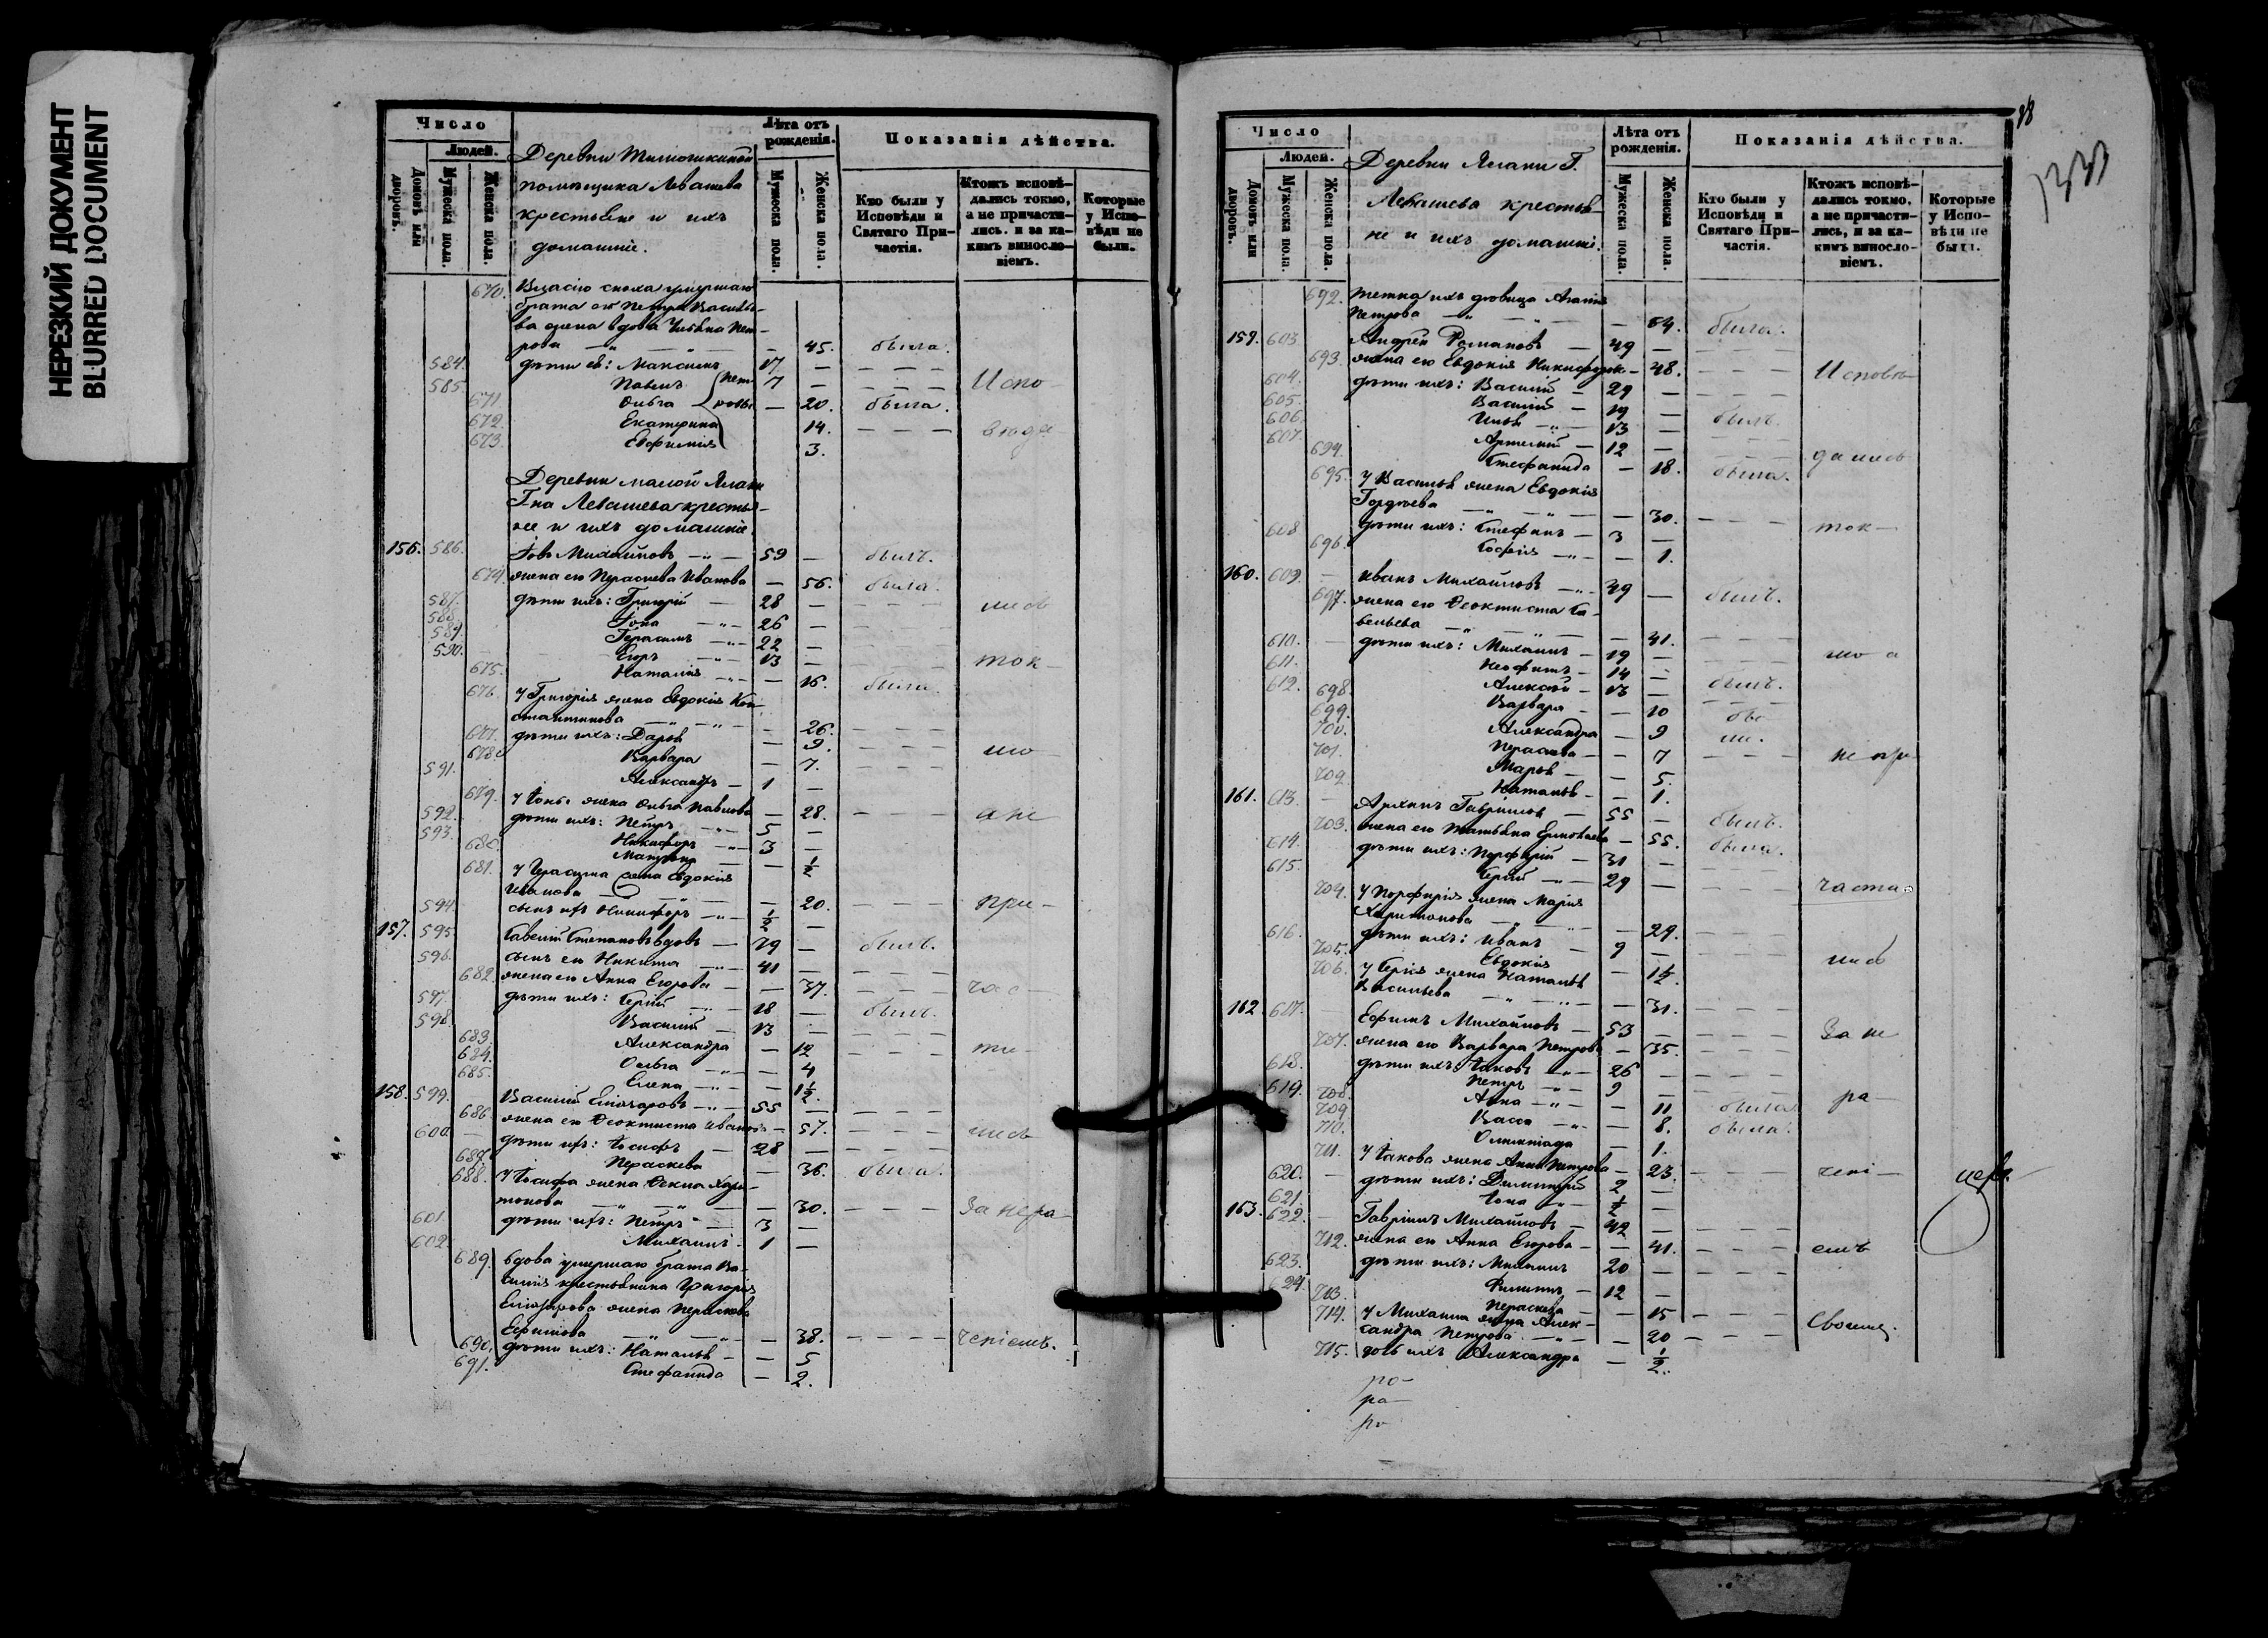 НЕРЕЗКИЙ ДОКУМЕНТ
BLURRED DOCUMENT
Число
Людей.
Домовъ или дворовъ.
Мужеска пола.
Женска пола.
Деревни
помѣщика Левашева
крестьяне и ихъ
домашніе.
Лѣта отъ рожденія.
Мужеска пола.
Женска пола.
Показанія дѣйства.
Кто были у Исповѣди и Святаго Причастія.
Ктожъ исповѣдались токмо, а не причастились. и за какимъ винословіемъ.
Которые у Исповѣди не были.
670. сноха умершаго
брата его Петра Василье-
ва жена вдова Пет-
рова — 45. была.
584. дѣти ея: Максимъ 17 —
585. Павелъ 7 — Испо-
671. Ольга — 20. была.
672. Екатерина 14.
673. Евфимія 3.
Деревни малой
Г-на Левашева крестья-
не и ихъ домашніе
156. 586. Іовъ Михайловъ — 59 — былъ.
674. жена его Параскева Иванова — 56. была.
587. дѣти ихъ: Григорій — 28 — лись
588. Іона — 26 —
589. Герасимъ — 22 —
590. Егоръ — 13 — ток-
675. Наталія — 16. была.
676. У Григорія жена Евдокія Кон-
стантинова — 26.
677. дѣти ихъ: Дарья — 9.
678. Варвара — 7. мо
591. Александръ — 1 —
679. У Іоны жена Ольга Павлова — 28. а не
592. дѣти ихъ: Петръ — 5 —
593. Никифоръ — 3 —
680. — ½
681. У Герасима жена Евдокія
Иванова — 20. при-
594. сынъ ихъ Никифоръ — ½ —
157. 595. Савелій Степановъ вдовъ — 79 — былъ.
596. сынъ его Никита — 41 —
682. жена его Анна Егорова — 37. час-
597. дѣти ихъ: Сергій — 18 — былъ.
598. Василій — 13 —
683. Александра — 12 ти-
684. Ольга — 4
685. Елена — 1½.
158. 599. Василій — 55 —
686. жена его Феоктиста Иванова — 57. лись
600. дѣти ихъ: Іосифъ — 28 —
687. Параскева — 36. была.
688. У Іосифа жена Фекла Хари-
тонова — 30. За нера-
601. дѣти ихъ: Петръ — 3 —
602. Михаилъ 1 —
689. вдова умершаго брата Ва-
силія крестьянина Григорія
жена Параскева
Ефимова — 38. ченіемъ.
690. дѣти ихъ: Наталья — 5
691. Стефанида — 2.
Число
Людей.
Домовъ или дворовъ.
Мужеска пола.
Женска пола.
Деревни Г.
Левашева крестья-
не и ихъ домашніе.
Лѣта отъ рожденія.
Мужеска пола.
Женска пола.
Показанія дѣйства.
Кто были у Исповѣди и Святаго Причастія.
Ктожъ исповѣдались токмо, а не причастились, и за какимъ винословіемъ.
Которые у Исповѣди не были.
692. тетка ихъ дѣвица
Петрова — была.
159. 603. Андрей Романовъ — 49 —
693. жена его Евдокія Никифорова — 48. Исповѣ-
604. дѣти ихъ: Василій — 29 —
605. Василій — 19 —
606. Илья — 13 — былъ.
607. Артемій — 12 —
694. Стефанида — 18. была. дались
695. У Василья жена Евдокія
Гордѣева — 30.
608 дѣти ихъ: Стефанъ — 3 — ток-
696. Софія — 1.
160. 609. Иванъ Михайловъ — 49 — былъ.
697. жена его Феоктиста Са-
вельева — 41.
610. дѣти ихъ: Михаилъ — 19 — мо а
611. Неофитъ — 14 —
612. Алексѣй — 13 — былъ.
698. Варвара — 10
699. Александра — 9
700. Параскева — 7 не при
701. Марья — 5.
702. Наталья — 1.
161. 613. Архипъ Гавріиловъ — 55 — былъ.
703. жена его Татьяна — 55. была.
614. дѣти ихъ: Порфирій — 31 —
615. Сергій — 29 — части
704. У Порфирія жена Марія
Харитонова — 29.
616. дѣти ихъ: Иванъ — 9 —
705. Евдокія — 1½. лись
706. У Сергія жена Наталья
Васильева — 31.
162. 617. Ефимъ Михайловъ — 53 — За не
707. жена его Варвара Петрова — 35.
618. дѣти ихъ: Іаковъ — 26 —
619. Петръ — 9 —
708. Анна — 11 была. ра-
709. Васса — 8. была.
710. Олимпіада — 1.
711. У Іакова жена Анна Петрова — 23. чені-
620. дѣти ихъ: Димитрій 2 —
621. Іона — ½ —
163. 622. Гавріилъ Михайловъ — 42 —
712. жена его Анна Егорова — 41. емъ
623. дѣти ихъ: Михаилъ 20 —
624. Филиппъ — 12 —
713. Параскева — 15
714. У Михаила жена Алек-
сандра Петрова — 20
715. дочь ихъ Александра — ½.
ро-
ра-